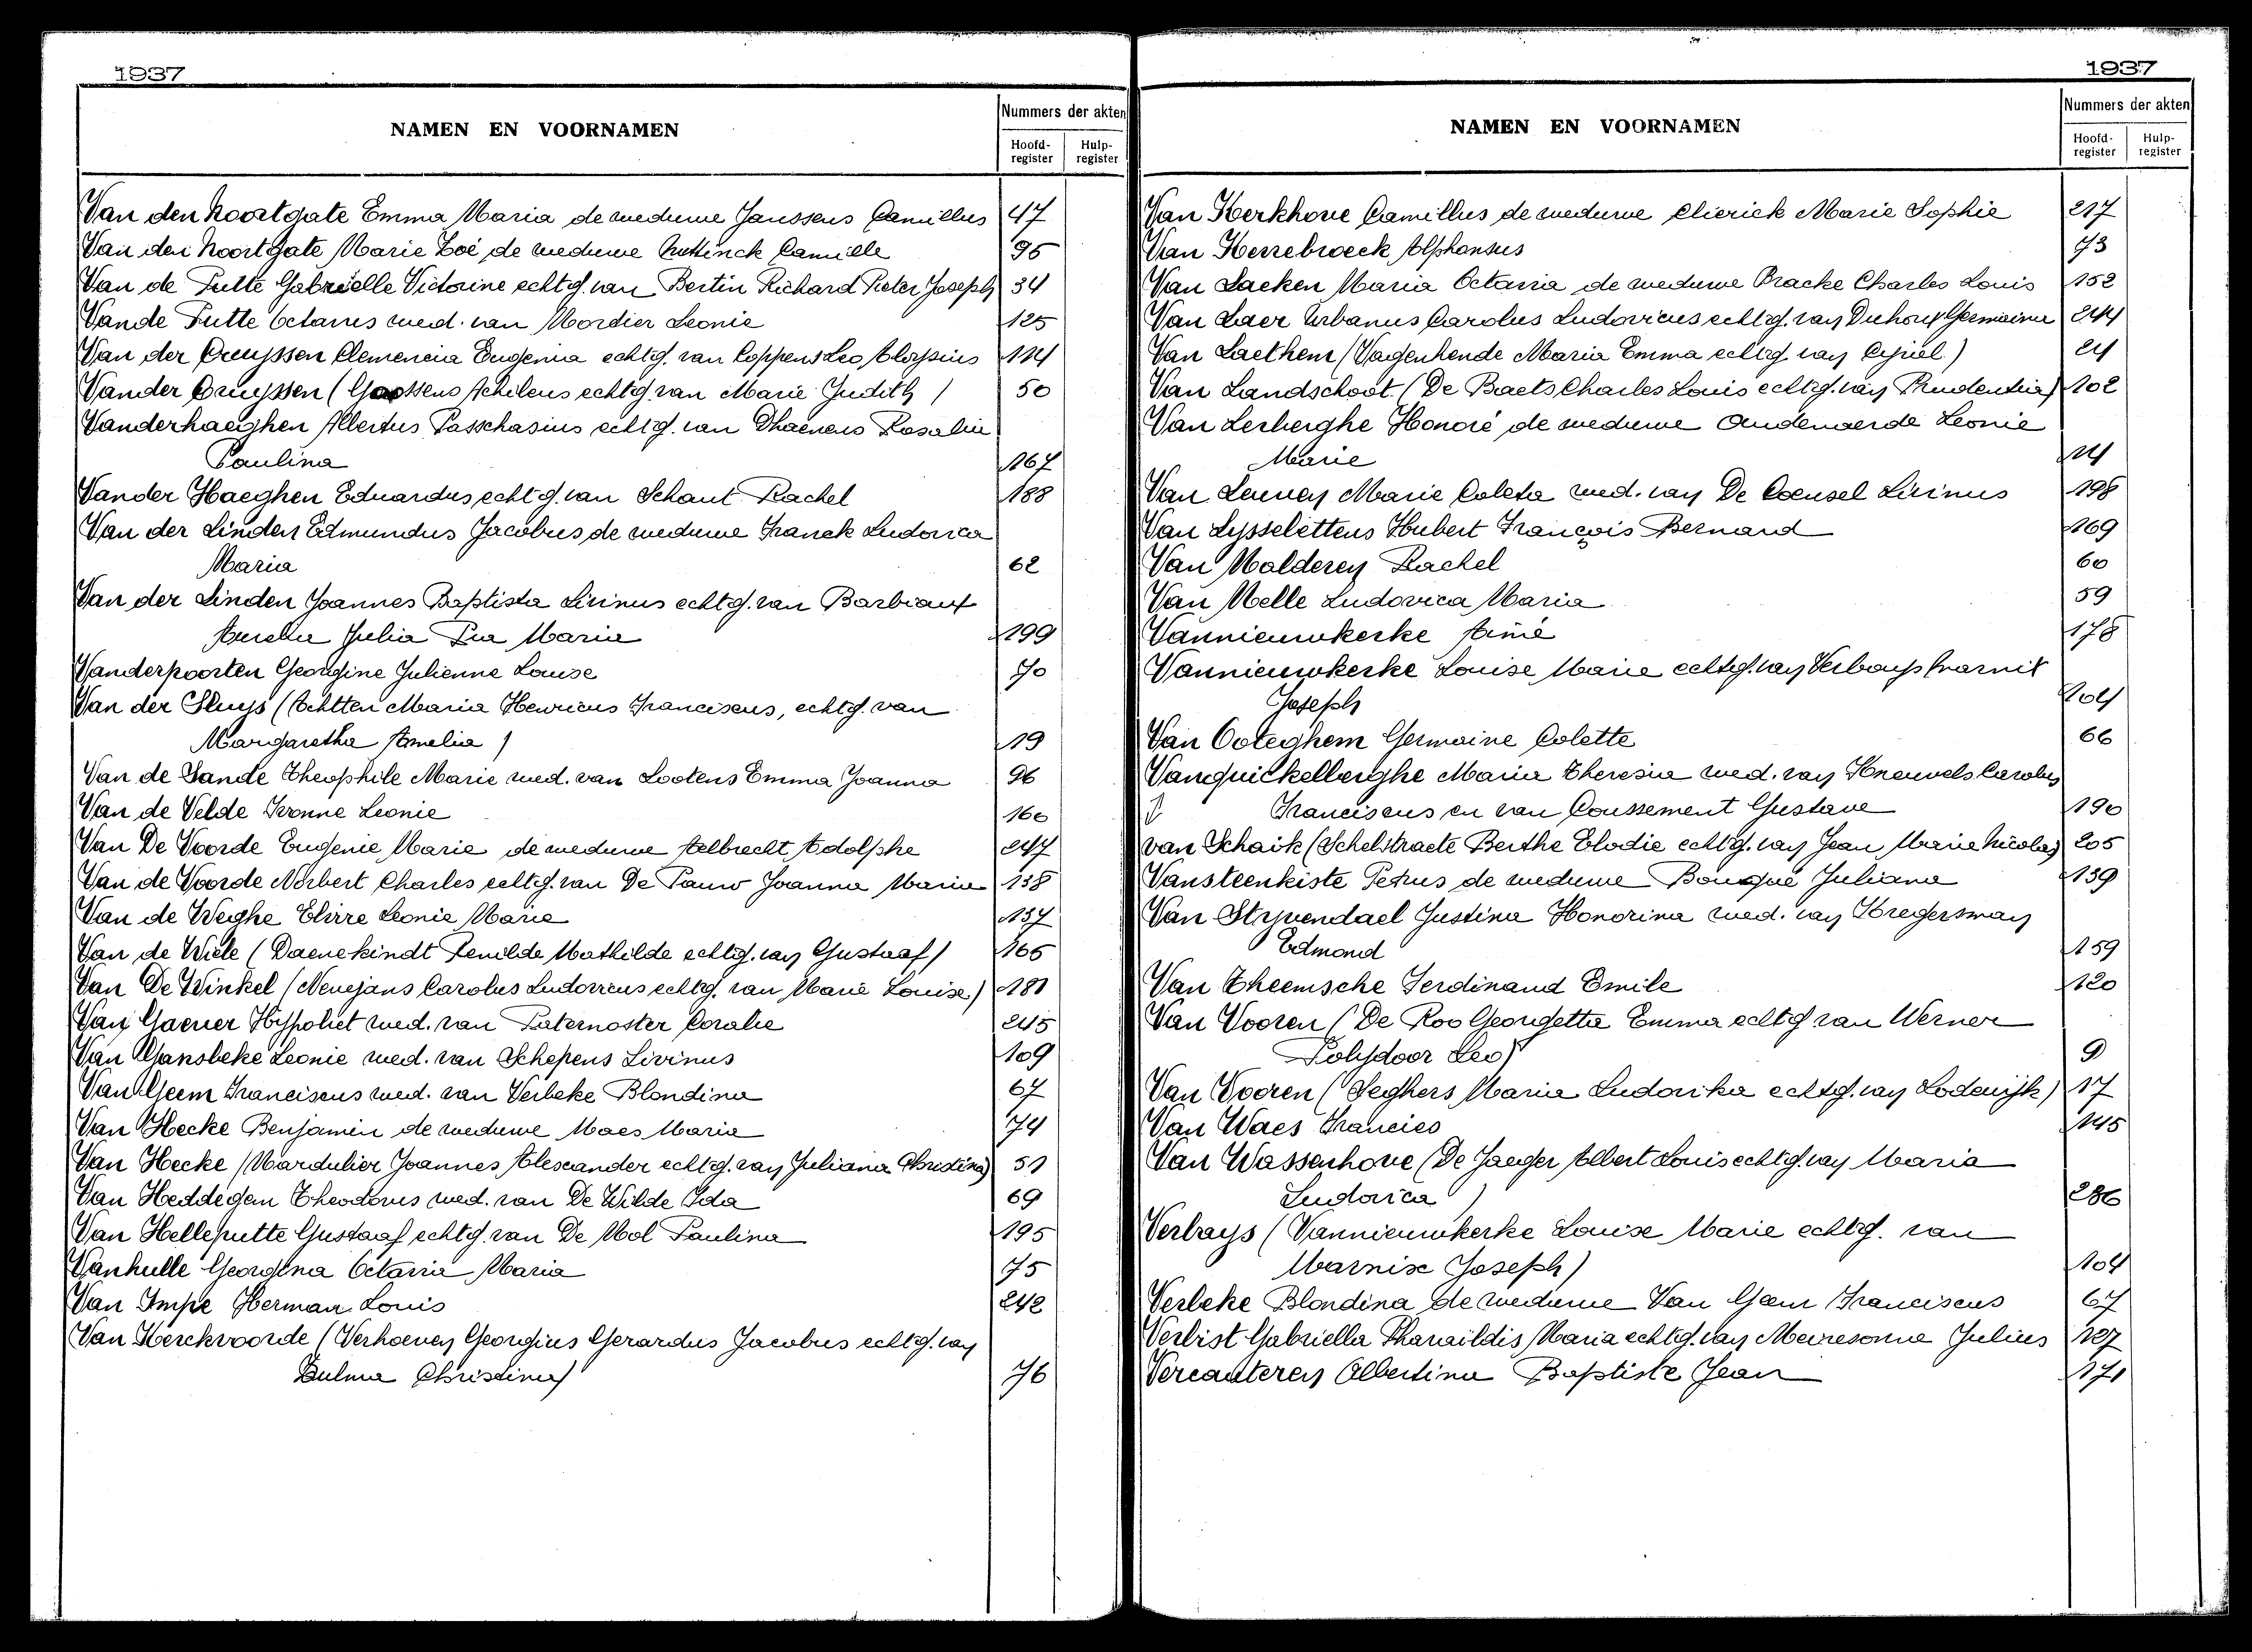 1937
NAMEN EN VOORNAMEN
Nummers der akten
Hoofd-register
Hulp-register
Van den Noortgate Emma Maria de weduwe Janssens Camillus 47
Van den Noortgate Marie Zoé de weduwe Camille 95
Van de Putte Gabriëlle Victorine echtg. van Bertin Richard Pieter Joseph 34
Van de Putte Octavus wed. van Mordier Leonie 125
Van der Cruyssen Clemencia Eugenia echtg. van Coppens Leo Aloysius 114
Vander Cruyssen (Goossens Achilens echtg. van Marie Judith) 50
Vanderhaeghen Albertus Passchasius echtg. van Dhaenens Rosalia
Paulina 167
Vander Haeghen Eduardus echtg. van Schaut Rachel 188
Van der Linden Edmundus Jacobus de weduwe Franck Ludovica
Maria 62
Van der Linden Joannes Baptista Livinus echtg. van Barbiaux
Aurelia Julia Pia Maria 199
Vanderpoorten Georgine Julienne Louise 70
Van der Sluys (Achtten Maria Henricus Franciscus, echtg. van
Margaretha Amelia) 19
Van de Sande Theophile Marie wed. van Lootens Emma Joanna 96
Van de Velde Ivonne Leonie 160
Van De Voorde Eugenie Marie de weduwe Aelbrecht Adolphe 247
Van de Voorde Norbert Charles echtg. van De Pauw Joanna Maria 138
Van de Weghe Elvire Leonie Marie 137
Van de Wiele (Daenekindt Renilde Mathilde echtg. van Gustaaf) 165
Van De Winkel (Nenejans Carolus Ludovicus echtg. van Marie Louise) 181
Van Gaever Hypoliet wed. van Paternoster Coralie 245
Van Gansbeke Leonie wed. van Schepens Livinus 109
Van Geem Franciscus wed. van Verbeke Blondina 67
Van Hecke Benjamin de weduwe Maes Maria 74
Van Hecke (Mardulier Joannes Alexander echtg. van Juliana Christina) 51
Van Heddegem Theodorus wed. van De Wilde Ida 69
Van Helleputte Gustaaf echtg. van De Mol Paulina 195
Vanhulle Georgina Octavia Maria 75
Van Impe Herman Louis 242
Van Kerckvoorde (Verhoeven Georgius Gerardus Jacobus echtg. van
Zulma Christina) 76
1937
NAMEN EN VOORNAMEN
Nummers der akten
Hoofd-register
Hulp-register
Van Kerkhove Camillus de weduwe Clierick Marie Sophie 217
Van Kerrebroeck Alphonsus 73
Van Laeken Maria Octavia de weduwe Bracke Charles Louis 152
Van Laer Urbanus Carolus Ludovicus echtg. van Duhoux Germaine 244
Van Laethem (Vagenhende Maria Emma echtg. van Cyriel) 24
Van Landschoot (De Baets Charles Louis echtg. van Prudentia) 102
Van Lerberghe Honoré de weduwe Oudenaerde Leonie
Marie 14
Van Marie Coleta wed. van De Livinus 198
Van Lysselettens Hubert François Bernard 169
Van Malderen Rachel 60
Van Melle Ludovica Maria 59
Vannieuwkerke Aimé 178
Vannieuwkerke Louise Marie echtg. van Verbauys Marnix
Joseph 104
Van Ooteghem Germaine Colette 66
Vanquickelberghe Maria Theresia wed. van Kneuvels Carolus
Franciscus en van Coussement Gustave 190
van Schaik (Schelstraete Berthe Elodie echtg. van Jean Marie Nicolas) 205
Vansteenkiste Petrus de weduwe Bouqué Juliana 139
Van Strijvendael Justina Honorina wed. van Bregersman
Edmond 159
Van Theemsche Ferdinand Emile 120
Van Vooren (De Roo Georgetta Emma echtg. van Werner
Polydoor Leo) 9
Van Vooren (Seghers Maria Ludovika echtg. van Lodewijk) 17
Van Waes Francies 145
Van Wassenhove (De Jaeger Albert Louis echtg. van Maria
Ludovica) 236
Verbays (Vannieuwkerke Louise Marie echtg. van
Marnix Joseph) 104
Verbeke Blondina de weduwe Van Gaem Franciscus 67
Verbist Gabriella Pharaïldis Maria echtg. van Meiresonne Julius 127
Vercauteren Albertina Baptiste Jean 171